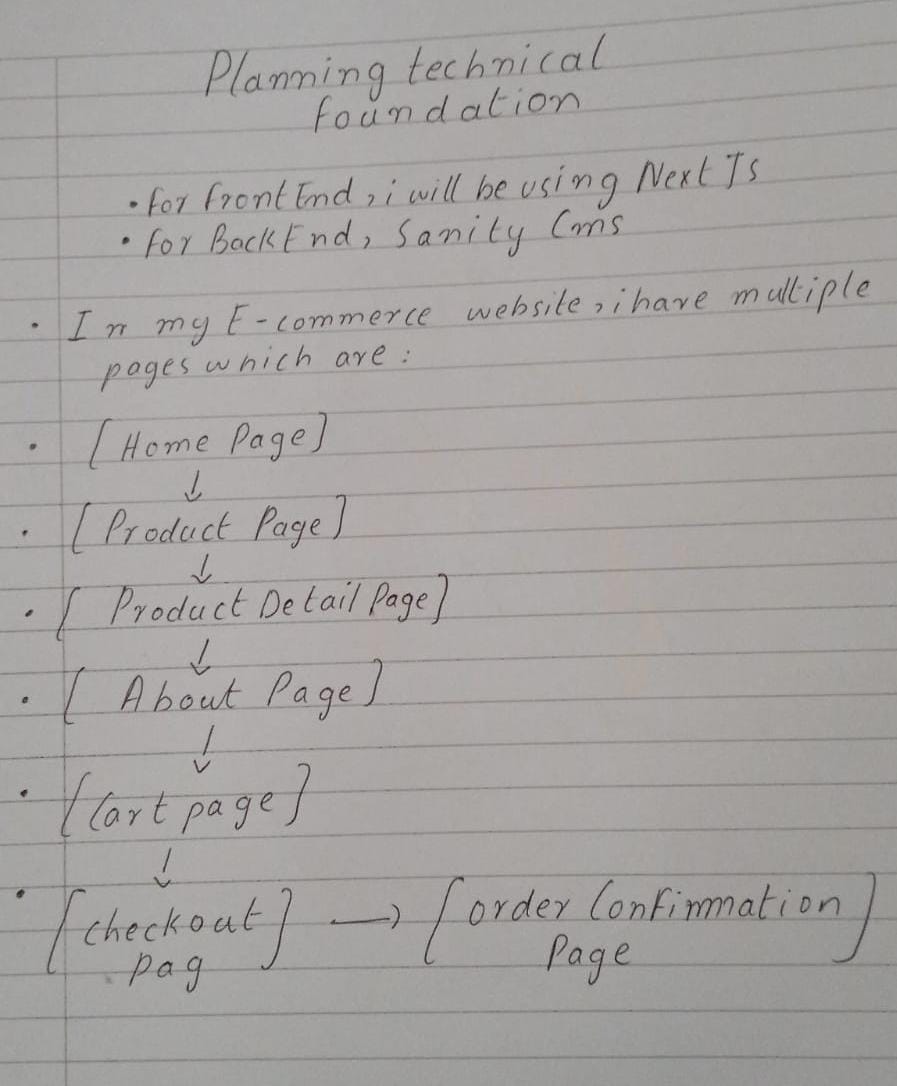 Planning technical
foundation
• for front End, i will be using Next Js
• for Back End, Sanity Cms
• In my E-commerce website, i have multiple
pages which are:
• [Home Page]
↓
• [Product Page]
↓
• [Product Detail Page]
↓
• [About Page]
↓
• [Cart page]
↓
• [checkout → [order Confimmation
pag] Page]